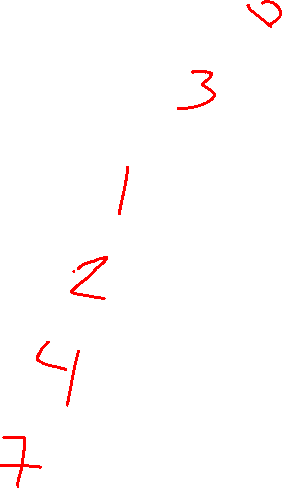 0
3
1
2
4
7